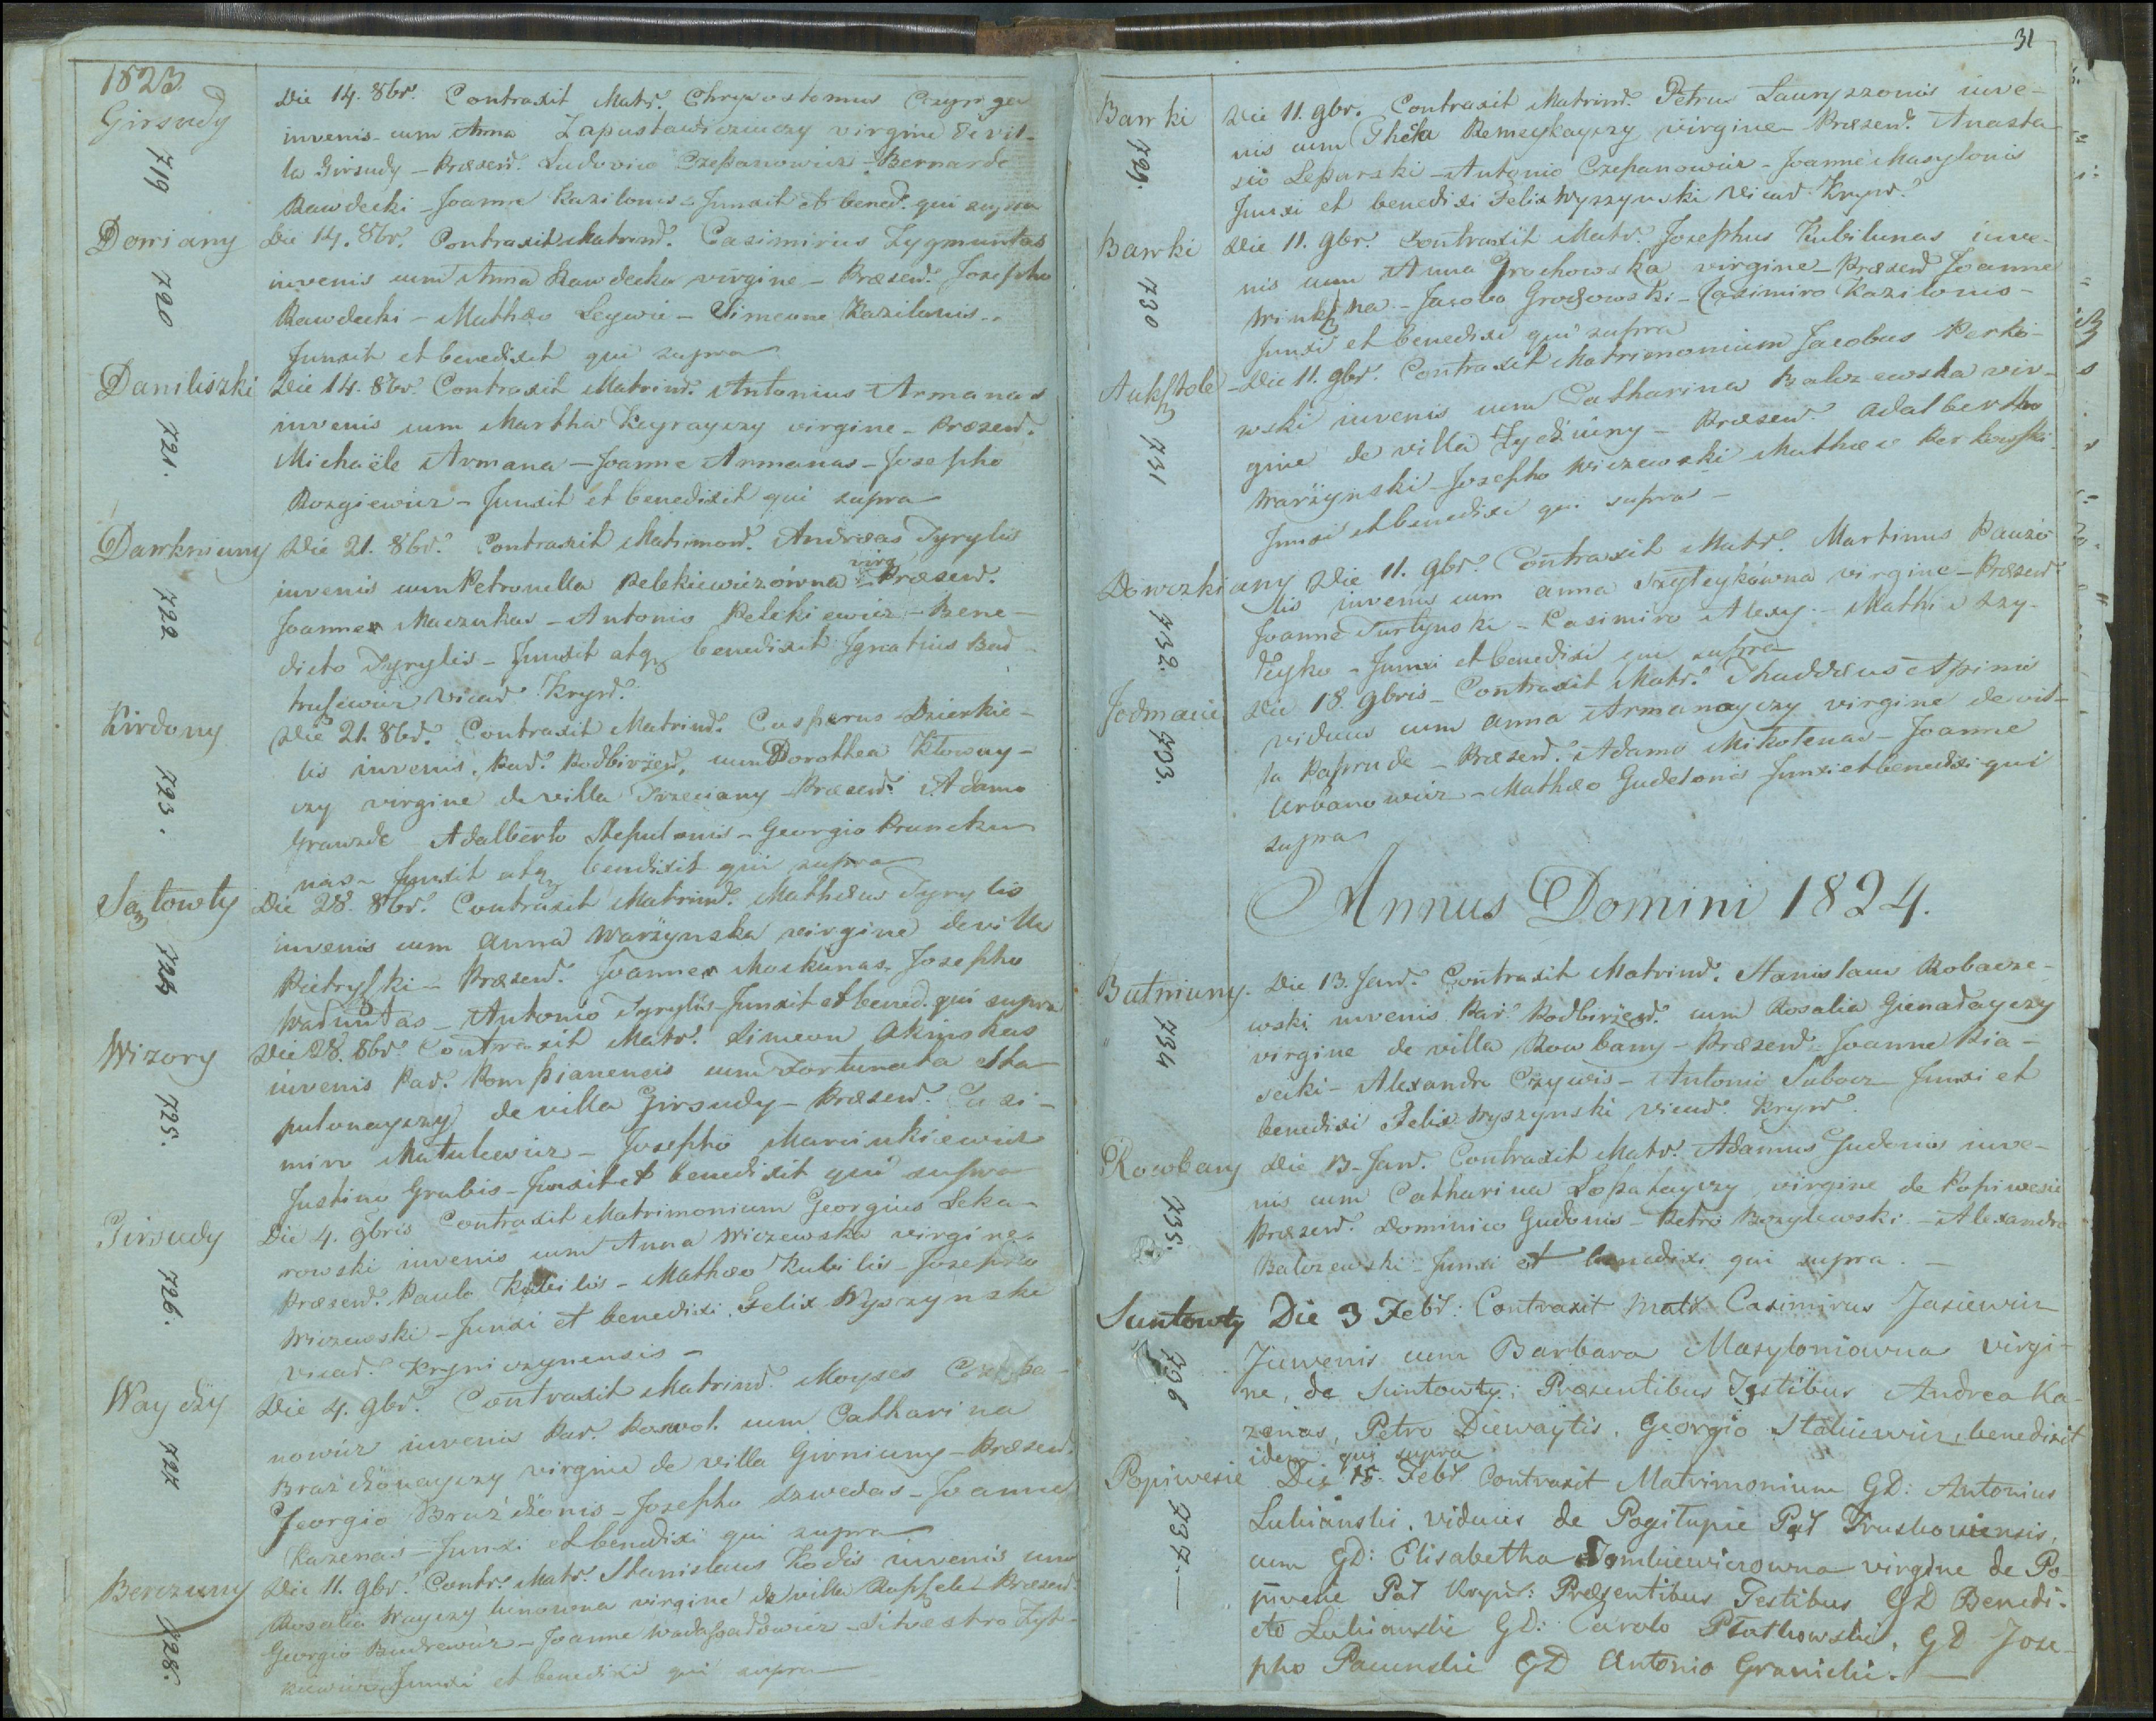 1823.
Girsudy
719
Die 14. 8br. Contraxit Matr. Chrysostomus Czynga
iuvenis cum Anna Zapustawiczuczy virgine de vil-
la Girsudy – Præsend. Ludovico Czepanowicz – Bernardo
Rawdecki – Joanne Kazilonis – Junxit et bened. qui supra
Dowiany
720
Die 14. 8br. Contraxit Matrind. Casimirus Zygmuntas
iuvenis cum Anna Rawdecka virgine – Præsend. Josepho
Rawdecki – Mathæo Leywie – Simeone Kazilonis –
Junxit et benedixit qui supra
Daniliszki
721.
Die 14. 8br. Contraxit Matrind. Antonius Armanas
iuvenis cum Martha Keyrayczy virgine – Præsend.
Michaële Armana – Joanne Armanas – Josepho
Rozgiewicz – Junxit et benedixit qui supra
Dawkniuny
722
Die 21. 8br. Contraxit Matrimond. Andreas Tyrylis
iuvenis cum Petronella Pelekiewiczówna virg. Præsend.
Joanne Maczukas – Antonio Pelekiewicz – Bene-
dicto Tyrylis – Junxit atq benedixit Ignatius Bud-
trusewicz Vicad. Krynd.
Kirdony
723.
Die 21. 8br. Contraxit Matrind. Casparus Dzierkie-
lis iuvenis, Pad. Podbirżend, cum Dorothea Klowuy-
czy virgine de villa Trzeciany – Præsend. Adamo
Grawzde Adalberto Stepulonis – Georgio Pruncku-
nas – Junxit atq bendixit qui supra
Santowty
724
Die 28. 8br. Contraxit Matrind. Mathæus Tyrylis
iuvenis cum Anna Warżynska virgine de villa
Pietryszki – Præsend. Joanne Moskunas, Josepho
Waduntas – Antonio Tyrylis – Junxit et bened. qui supra
Wizory
725.
Die 28. 8br. Contraxit Matr. Simeon Akinskas
iuvenis Pad. Pompianensis cum Fortunata Sta-
pulonayczy de villa Girsudy – Præsend. Casi-
miro Matulewicz – Josepho Marcinkiewicz
Justino Grubis – Junxit et benedixit qui supra
Girsudy
726.
Die 4. 9bris Contraxit Matrimonium Georgius Seka-
rowski iuvenis cum Anna Wiczewska virgine.
Præsend. Paulo Kubilis – Mathæo Kubilis – Josepho
Wiczewski – Junxi et benedixi Felix Wyszynski
vicad. Kryniczynensis –
Wayczy
727
Die 4. 9br. Contraxit Matrind. Moyses Czepa-
nowicz iuvenis Par. Poswol. cum Catharina
Braźdżonayczy virgine de villa Girniuny – Præsend.
Georgio Braźdżonis – Josepho Szwedas – Joanne
Kazenas – Junxi et benedixi qui supra
Berczuny
728.
Die 11. 9br. Contr. Matr. Stanislaus Kodis iuvenis cum
Rosalia Wayczylunowna virgine de villa Præsend.
Georgio Budrewicz – Joanne – Silvestro Zyt-
kiewicz Junxi et benedixi qui supra
31
Bawki
729.
Die 11. 9br. Contraxit Matrind. Petrus Lauryszonis iuve-
nis cum Thekla Remeykayczy virgine – Præsend. Anasta-
sio Leparski – Antonio Czepanowicz – Joanne Masylonis
Junxi et benedixi Felix Wyszynski Vicad. Krynd.
Bawki
730
Die 11. 9br. Contraxit Matr. Josephus Kubilunas iuve-
nis cum Anna Grochowska virgine – Præsend Joanne
Winkszna – Jacobo Grochowski – Casimiro Kazilonis –
Junxi et benedixi qui supra
Auksztole
731
Die 11. 9br. Contraxit Matrimonium Jacobus Perko-
wski iuvenis cum Catharina Balczewska vir-
gine de villa Zydziuny – Præsend. Adalberto
Warżynski – Josepho Wiczewski Mathæo Perkowski
Junxi et benedixi qui supra –
Dowczkiany
732.
Die 11. 9br. Contraxit Matr. Martinus Pauzo-
lis iuvenis cum Anna Szyleykówna virgine – Præsend
Joanne Turlynski – Casimiro Alexy – Mathia Szy-
leyko – Junxi et benedixi qui supra
Jodmacie
733.
Die 18. 9bris – Contraxit Matr. Thaddæus Apinis
viduus cum Anna Armanayczy virgine de vil-
la Paprude – Præsend. Adamo Mikolenas – Joanne
Urbanowicz – Mathæo Gudelonis Junxi et benedixi qui
supra
Annus Domini 1824.
Butniuny.
734
Die 13. Jand. Contraxit Matrind. Stanislaus Robacze-
wski iuvenis Par. Podbirżend. cum Rosalia Gienadayczy
virgine de villa Rowbany – Præsend. Joanne Pia-
secki – Alexandro Czywis – Antonio Subocz – Junxi et
benedixi Felix Wyszynski vicad. Krynd.
Rowbany
735.
Die 13. Jand. Contraxit Matr. Adamus Gudonis iuve-
nis cum Catharina Lopatayczy virgine de Popiwesie
Præsend. Dominico Gudonis – Petro Bozylewski – Alexandro
Balczewski – Junxi et benedixi qui supra. –
Suntowty
736
Die 3 Febr: Contraxit Matr: Casimirus Jasiewicz
Juvenis cum Barbara Masyloniowna virgi-
ne, de Suntowty; Præsentibus Testibus Andrea Ka-
zenas, Petro Diewaytis, Georgio Staliewicz, benedixit
idem qui supra
Popiwesie
737
Die 15. Febr Contraxit Matrimonium GD: Antonius
Lukianski, viduus de Pogitupie Par Truskowiensis,
cum GD: Elisabetha Tomkiewiczowna virgine de Po-
piwesie Par Krynd: Præsentibus Testibus GD Benedi-
cto Lukianski GD: Carolo Platkowski, GD Jose-
pho Pacunski GD Antonio Granicki. –